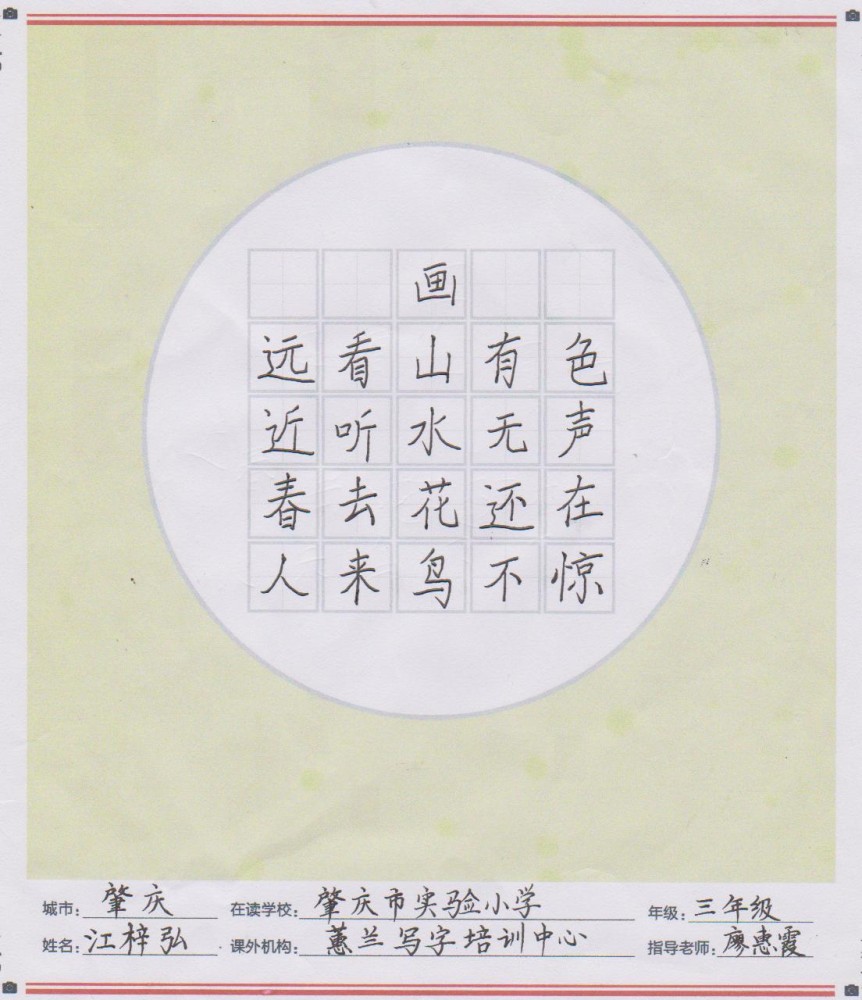 画
远看山有色
近听水无声
春去花还在
人来鸟不惊
城市: 肇庆 在读学校: 肇庆市实验小学 年级: 三年级
姓名: 江梓弘 课外机构: 蕙兰写字培训中心 指导老师: 廖惠霞